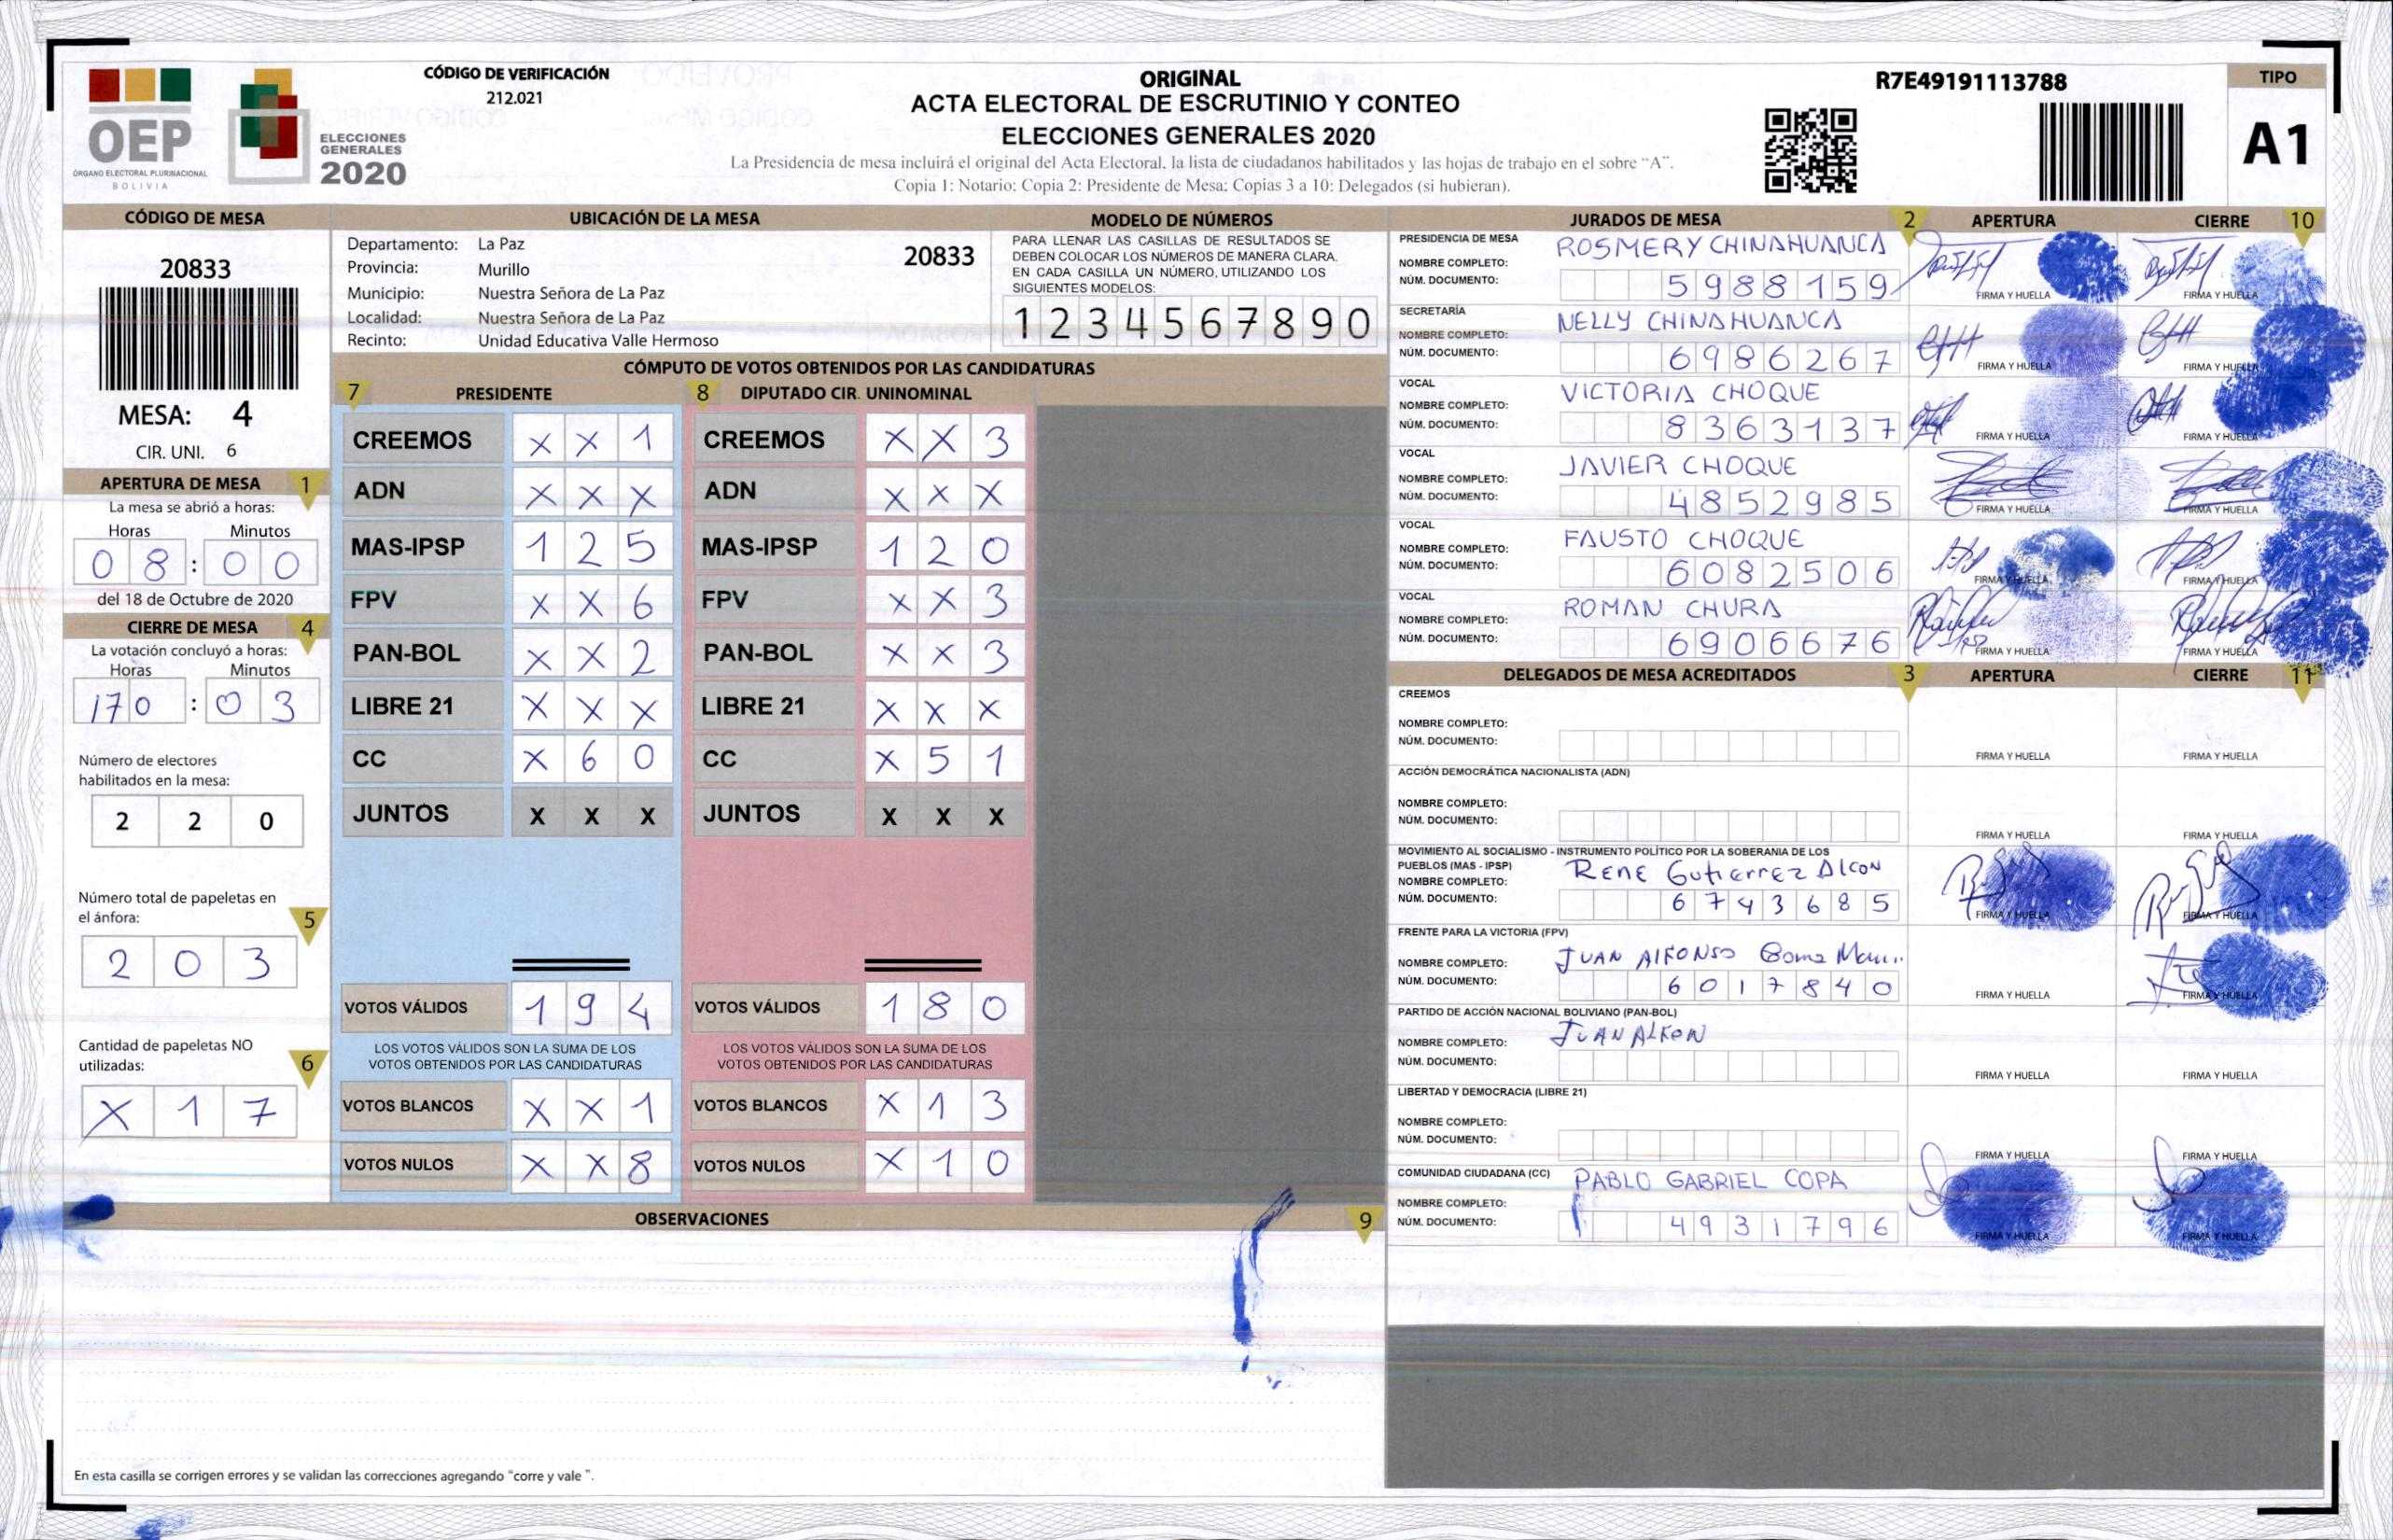 CÓDIGO DE VERIFICACIÓN
212.021
OEP
ÓRGANO ELECTORAL PLURINACIONAL
BOLIVIA
ELECCIONES
GENERALES
2020
ORIGINAL
ACTA ELECTORAL DE ESCRUTINIO Y CONTEO
ELECCIONES GENERALES 2020
La Presidencia de mesa incluirá el original del Acta Electoral, la lista de ciudadanos habilitados y las hojas de trabajo en el sobre “A”.
Copia 1: Notario; Copia 2: Presidente de Mesa; Copias 3 a 10: Delegados (si hubieran).
R7E49191113788
TIPO
A1
CÓDIGO DE MESA
20833
MESA: 4
CIR. UNI. 6
APERTURA DE MESA 1
La mesa se abrió a horas:
Horas Minutos
0 8 : 0 0
del 18 de Octubre de 2020
CIERRE DE MESA 4
La votación concluyó a horas:
Horas Minutos
17 0 : 0 3
Número de electores
habilitados en la mesa:
2 2 0
Número total de papeletas en
el ánfora: 5
2 0 3
Cantidad de papeletas NO
utilizadas: 6
X 1 7
UBICACIÓN DE LA MESA
Departamento: La Paz
20833
Provincia: Murillo
Municipio: Nuestra Señora de La Paz
Localidad: Nuestra Señora de La Paz
Recinto: Unidad Educativa Valle Hermoso
MODELO DE NÚMEROS
PARA LLENAR LAS CASILLAS DE RESULTADOS SE
DEBEN COLOCAR LOS NÚMEROS DE MANERA CLARA.
EN CADA CASILLA UN NÚMERO, UTILIZANDO LOS
SIGUIENTES MODELOS:
1 2 3 4 5 6 7 8 9 0
CÓMPUTO DE VOTOS OBTENIDOS POR LAS CANDIDATURAS
7 PRESIDENTE
CREEMOS X X 1
ADN X X X
MAS-IPSP 1 2 5
FPV X X 6
PAN-BOL X X 2
LIBRE 21 X X X
CC X 6 0
JUNTOS X X X
VOTOS VÁLIDOS 1 9 4
LOS VOTOS VÁLIDOS SON LA SUMA DE LOS
VOTOS OBTENIDOS POR LAS CANDIDATURAS
VOTOS BLANCOS X X 1
VOTOS NULOS X X 8
8 DIPUTADO CIR. UNINOMINAL
CREEMOS X X 3
ADN X X X
MAS-IPSP 1 2 0
FPV X X 3
PAN-BOL X X 3
LIBRE 21 X X X
CC X 5 1
JUNTOS X X X
VOTOS VÁLIDOS 1 8 0
LOS VOTOS VÁLIDOS SON LA SUMA DE LOS
VOTOS OBTENIDOS POR LAS CANDIDATURAS
VOTOS BLANCOS X 1 3
VOTOS NULOS X 1 0
OBSERVACIONES 9
En esta casilla se corrigen errores y se validan las correcciones agregando “corre y vale”.
JURADOS DE MESA 2 APERTURA CIERRE 10
PRESIDENCIA DE MESA
NOMBRE COMPLETO: ROSMERY CHINAHUANCA
NÚM. DOCUMENTO: 5988159
FIRMA Y HUELLA FIRMA Y HUELLA
SECRETARÍA
NOMBRE COMPLETO: NELLY CHINAHUANCA
NÚM. DOCUMENTO: 6986267
FIRMA Y HUELLA FIRMA Y HUELLA
VOCAL
NOMBRE COMPLETO: VICTORIA CHOQUE
NÚM. DOCUMENTO: 8363137
FIRMA Y HUELLA FIRMA Y HUELLA
VOCAL
NOMBRE COMPLETO: JAVIER CHOQUE
NÚM. DOCUMENTO: 4852985
FIRMA Y HUELLA FIRMA Y HUELLA
VOCAL
NOMBRE COMPLETO: FAUSTO CHOQUE
NÚM. DOCUMENTO: 6082506
FIRMA Y HUELLA FIRMA Y HUELLA
VOCAL
NOMBRE COMPLETO: ROMAN CHURA
NÚM. DOCUMENTO: 6906676
FIRMA Y HUELLA FIRMA Y HUELLA
DELEGADOS DE MESA ACREDITADOS 3 APERTURA CIERRE 11
CREEMOS
NOMBRE COMPLETO:
NÚM. DOCUMENTO:
FIRMA Y HUELLA FIRMA Y HUELLA
ACCIÓN DEMOCRÁTICA NACIONALISTA (ADN)
NOMBRE COMPLETO:
NÚM. DOCUMENTO:
FIRMA Y HUELLA FIRMA Y HUELLA
MOVIMIENTO AL SOCIALISMO - INSTRUMENTO POLÍTICO POR LA SOBERANIA DE LOS
PUEBLOS (MAS - IPSP)
NOMBRE COMPLETO: RENE GutiERREZ Alcon
NÚM. DOCUMENTO: 6743685
FIRMA Y HUELLA FIRMA Y HUELLA
FRENTE PARA LA VICTORIA (FPV)
NOMBRE COMPLETO: JUAN AlFONSO
NÚM. DOCUMENTO: 6017840
FIRMA Y HUELLA FIRMA Y HUELLA
PARTIDO DE ACCIÓN NACIONAL BOLIVIANO (PAN-BOL)
NOMBRE COMPLETO: JUAN ALFON
NÚM. DOCUMENTO:
FIRMA Y HUELLA FIRMA Y HUELLA
LIBERTAD Y DEMOCRACIA (LIBRE 21)
NOMBRE COMPLETO:
NÚM. DOCUMENTO:
FIRMA Y HUELLA FIRMA Y HUELLA
COMUNIDAD CIUDADANA (CC)
NOMBRE COMPLETO: PABLO GABRIEL COPA
NÚM. DOCUMENTO: 4931796
FIRMA Y HUELLA FIRMA Y HUELLA